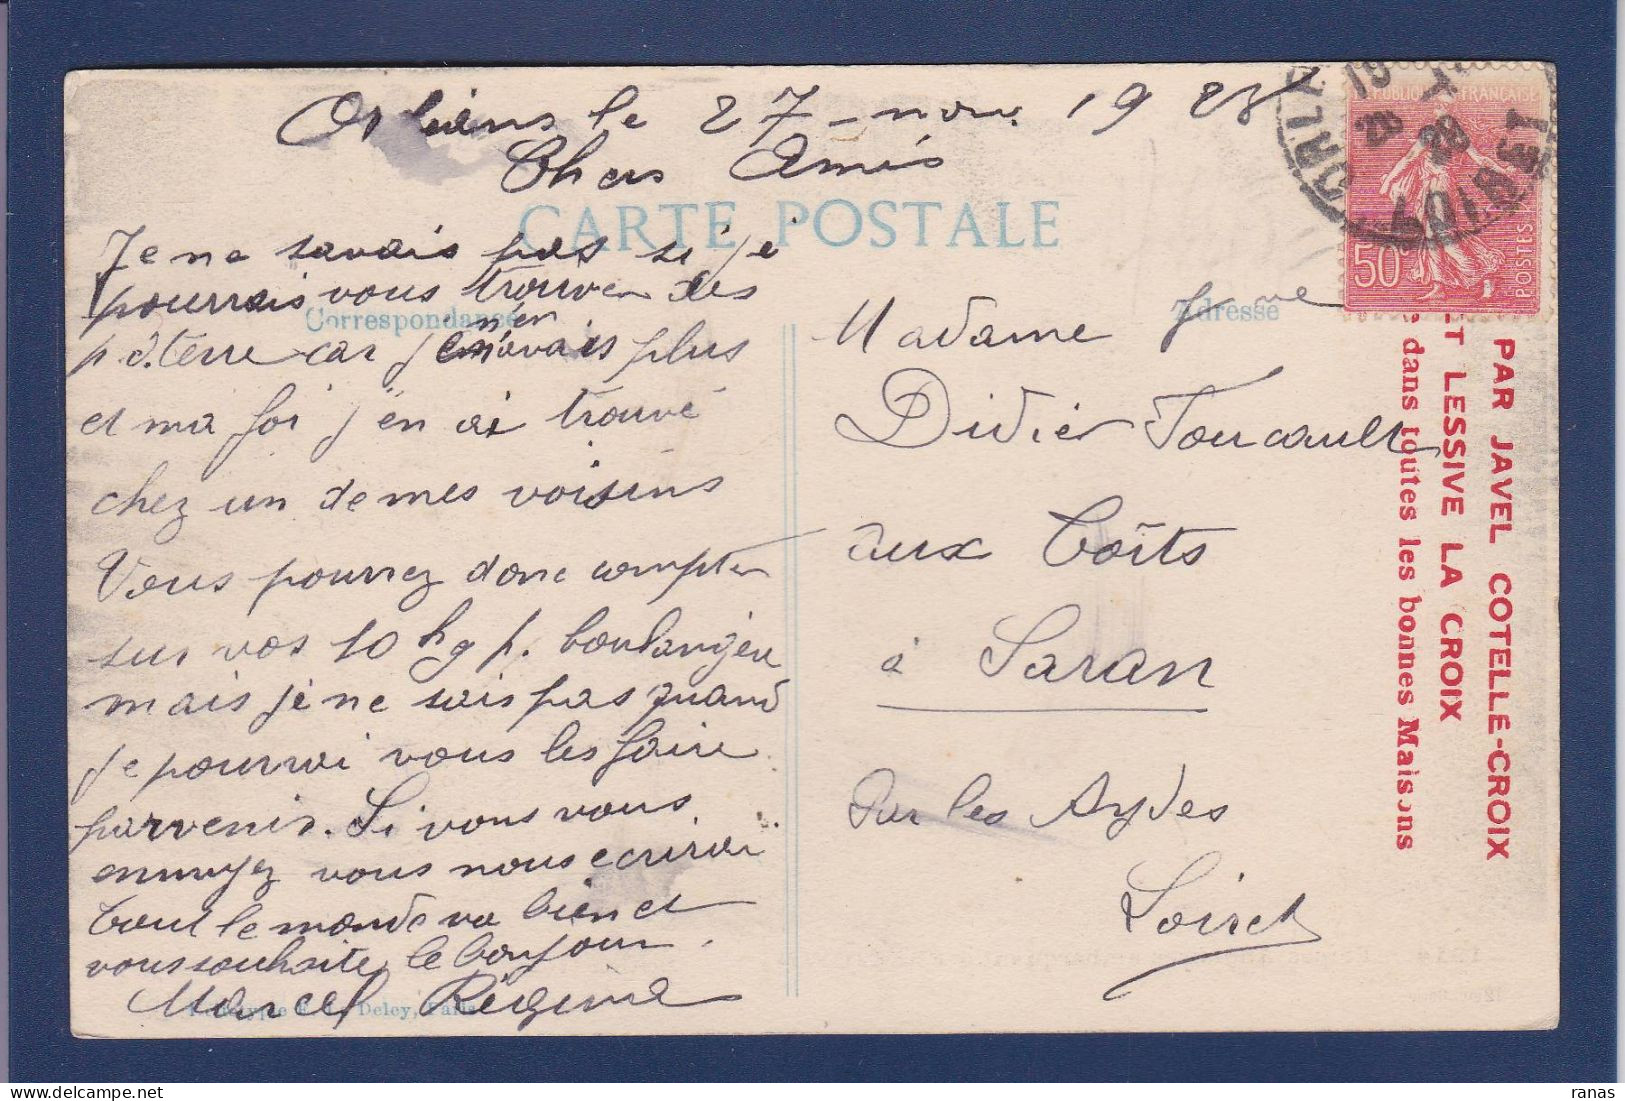 Orléans le 27 - nov. 1928
Chers Amis
CARTE POSTALE
Je ne savais pas si je
pourrais vous trouver des
Correspondance
p. d. terre car j'en
n'en avais plus
et ma foi j'en ai trouvé
chez un de mes voisins
Vous pourrez donc compter
sur vos 10 kg p. boulangère
mais je ne sais pas quand
je pourrai vous les faire
parvenir. Si vous vous
ennuyez vous nous écrirai
tout le monde va bien et
vous souhaite le bonjour.
Marcel Régine
Deley, Paris
Adresse
Madame Jne
Didier Foucault
aux Coîts
à Saran
Par les Aydes
Loiret
RÉPUBLIQUE FRANÇAISE
50c
POSTES
LOIRET
28
PAR JAVEL COTELLE-CROIX
T LESSIVE LA CROIX
dans toutes les bonnes Maisons
ranas